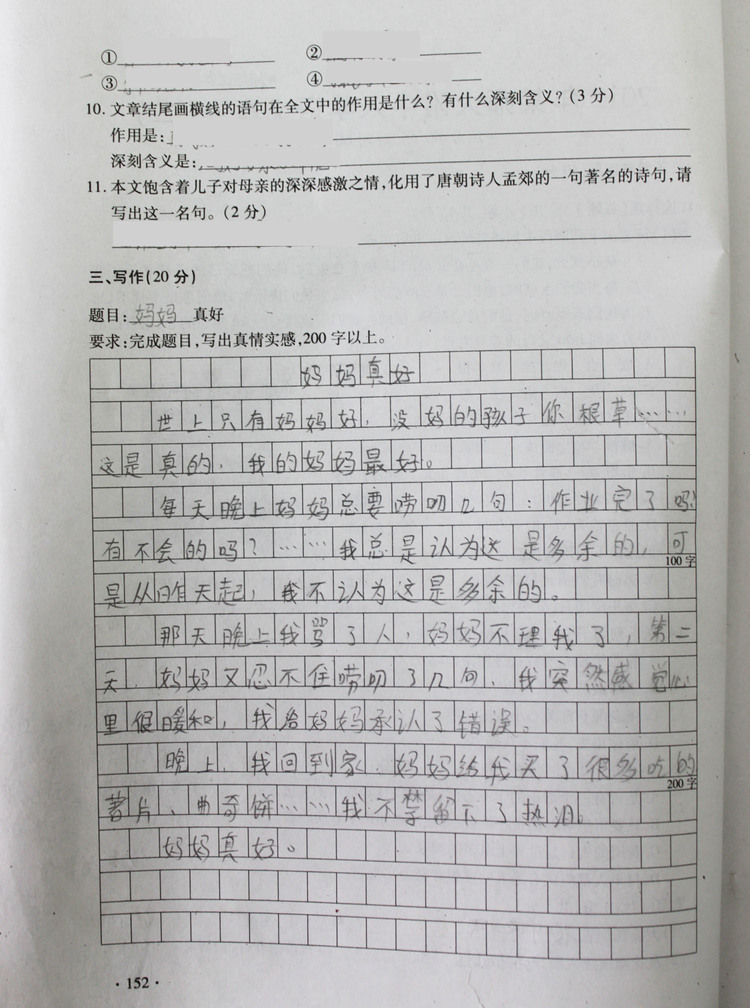 ① ②
③ ④
10. 文章结尾画横线的语句在全文中的作用是什么？有什么深刻含义？(3 分)
作用是：
深刻含义是：
11. 本文饱含着儿子对母亲的深深感激之情，化用了唐朝诗人孟郊的一句著名的诗句，请
写出这一名句。(2 分)
三、写作(20 分)
题目：妈妈 真好
要求：完成题目，写出真情实感，200 字以上。
妈妈真好
世上只有妈妈好，没妈的孩子你根草……
这是真的，我的妈妈最好。
每天晚上妈妈总要唠叨几句：作业完了吗？
有不会的吗？……我总是认为这是多余的，可
100 字
是从昨天起，我不认为这是多余的。
那天晚上我骂了人，妈妈不理我了，第二
天，妈妈又忍不住唠叨了几句，我突然感觉心
里很暖和，我给妈妈承认了错误。
晚上，我回到家，妈妈给我买了很多吃的
200 字
薯片、曲奇饼……我不禁留下了热泪。
妈妈真好。
· 152 ·